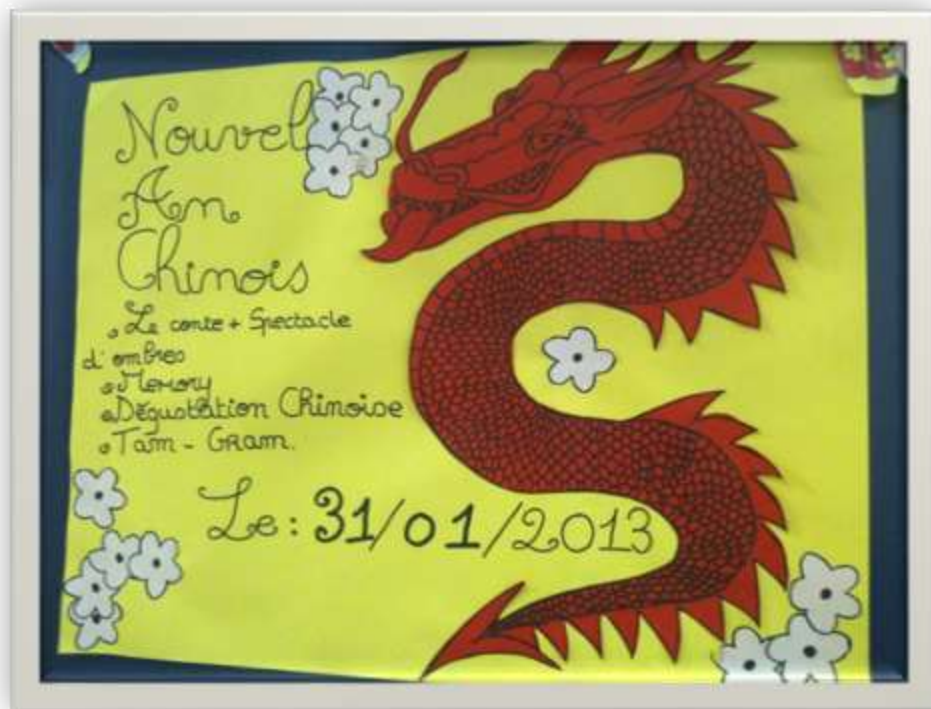 Nouvel
An
Chinois
• Le conte + Spectacle
d'ombres
• Memory
• Dégustation Chinoise
• Tam - Gram.
Le : 31/01/2013